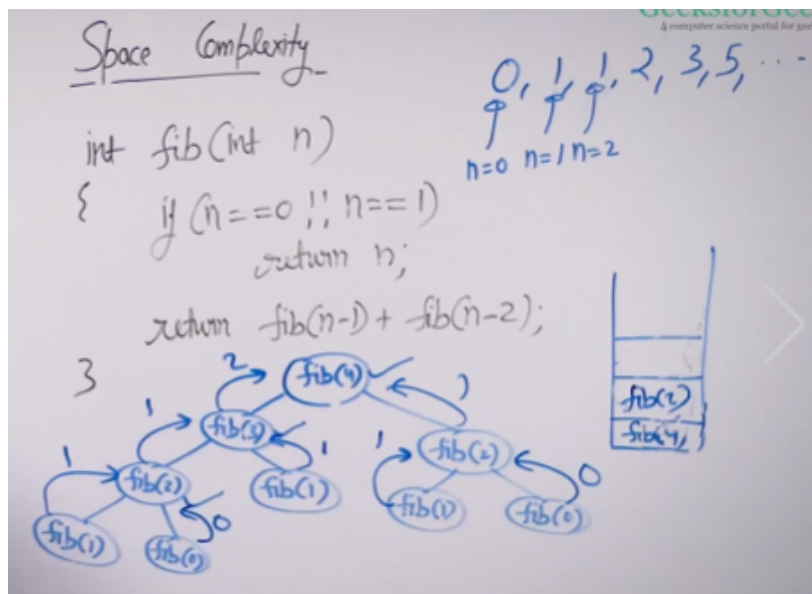 GeeksforGee
A computer science portal for gee
Space Complexity
0, 1, 1, 2, 3, 5, ...
n=0 n=1 n=2
int fib(int n)
{
if (n==0 || n==1)
return n;
return fib(n-1) + fib(n-2);
}
2 fib(4) 1
1 fib(3) 1 1 fib(2) 0
1 fib(2) 0 fib(1) fib(1) fib(0)
fib(1) fib(0)
fib(2)
fib(4)